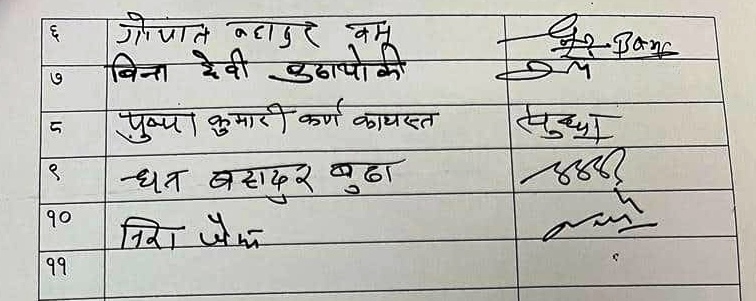 ६ गोपाल बहादुर बम Bam
७ बिना देवी बुढाथोकी
८ पुष्पा कुमारी कर्ण कायस्त पुष्पा
९ धन बहादुर बुढा
१० निरा जैरू
११